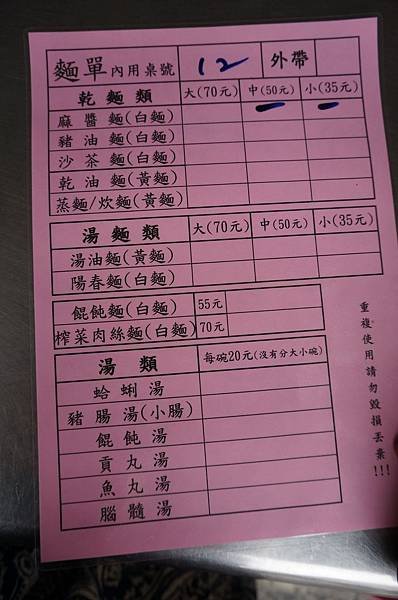 麵單 內用桌號 12 外帶
乾麵類 大(70元) 中(50元) 小(35元)
麻醬麵(白麵)
豬油麵(白麵)
沙茶麵(白麵)
乾油麵(黃麵)
蒸麵/炊麵(黃麵)
湯麵類 大(70元) 中(50元) 小(35元)
湯油麵(黃麵)
陽春麵(白麵)
餛飩麵(白麵) 55元
榨菜肉絲麵(白麵) 70元
湯類 每碗20元(沒有分大小碗)
蛤蜊湯
豬腸湯(小腸)
餛飩湯
貢丸湯
魚丸湯
腦髓湯
重複使用請勿毀損丟棄!!!